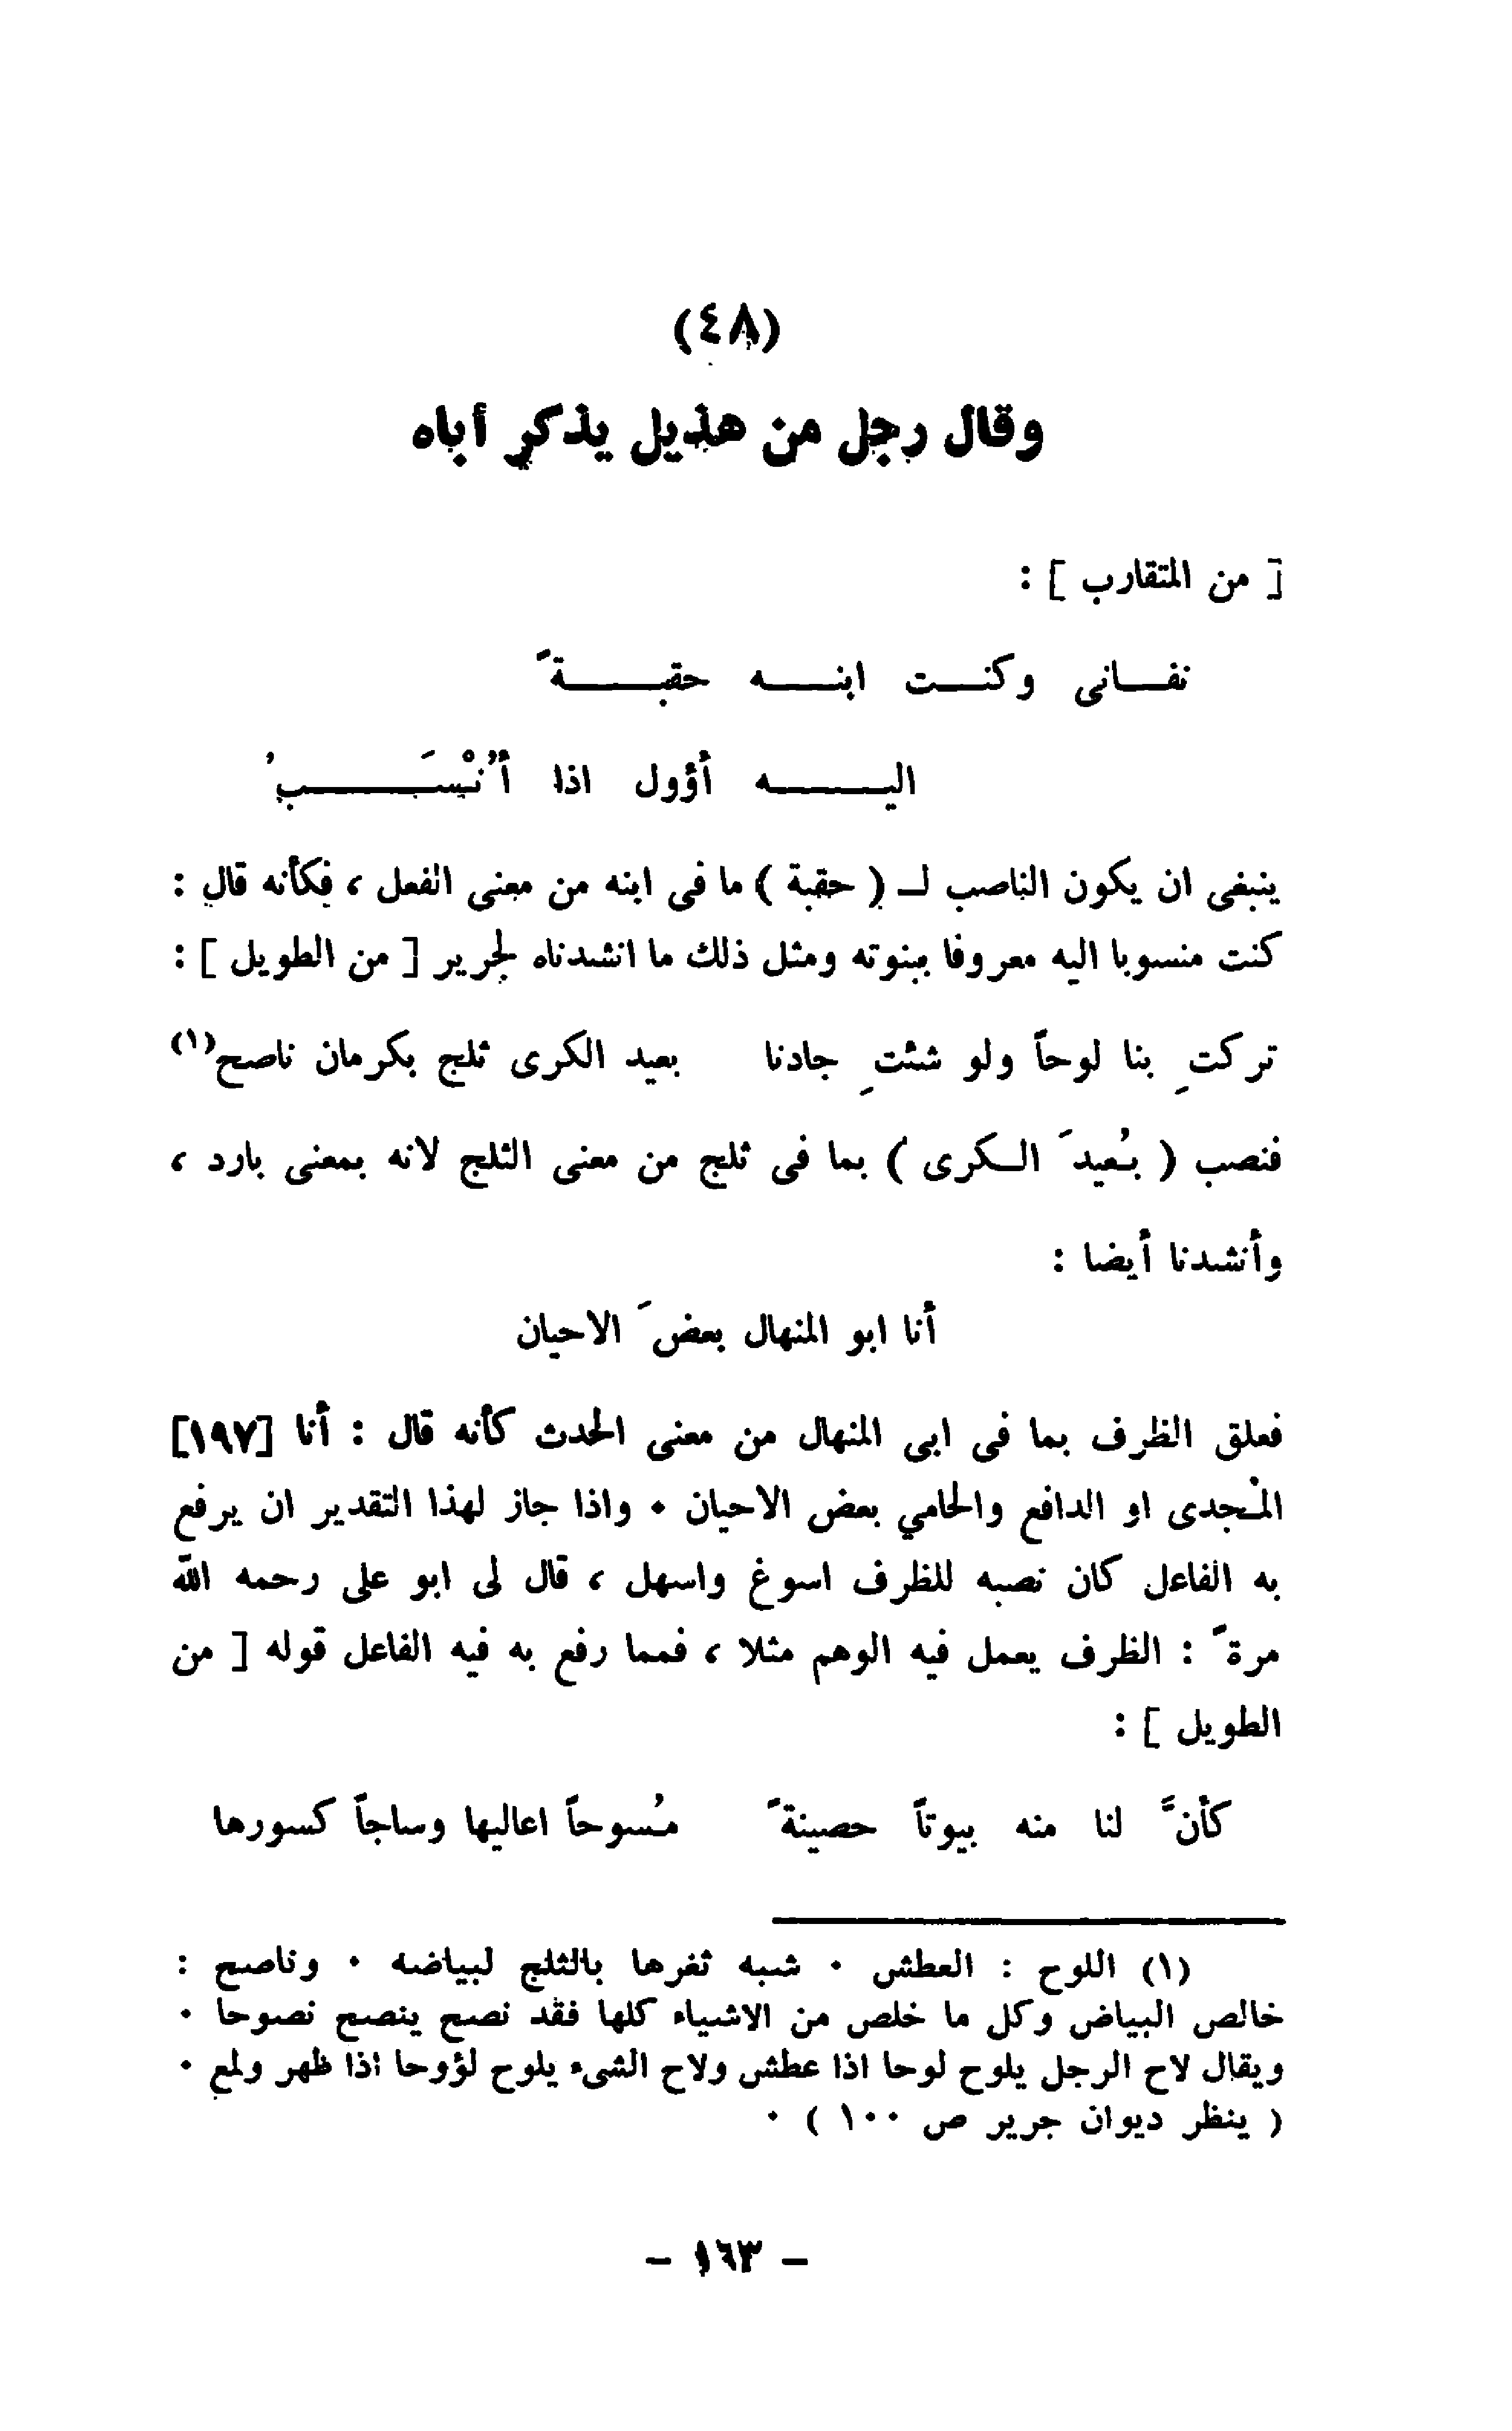 (٤٨)
وقال رجل من هذيل يذكر أباه
[ من المتقارب ] :
نفـانى وكنـت ابنـه حقبـةً
اليـه أؤول اذا أُنْسَـبُ
ينبغى ان يكون الناصب لـ ( حقبة ) ما فى ابنه من معنى الفعل ، فكأنه قال :
كنت منسوبا اليه معروفا ببنوته ومثل ذلك ما انشدناه لجرير [ من الطويل ] :
تركتِ بنا لوحاً ولو شئتِ جادنا بعيد الكرى ثلج بكرمان ناصح(١)
فنصب ( بُعيدَ الـكرى ) بما فى ثلج من معنى الثلج لانه بمعنى بارد ،
وأنشدنا أيضا :
أنا ابو المنهال بعضَ الاحيان
فعلق الظرف بما فى ابى المنهال من معنى الحدث كأنه قال : أنا [١٩٧]
المُجدى او الدافع والحامي بعض الاحيان ٠ واذا جاز لهذا التقدير ان يرفع
به الفاعل كان نصبه للظرف اسوغ واسهل ، قال لى ابو على رحمه الله
مرةً : الظرف يعمل فيه الوهم مثلا ، فمما رفع به فيه الفاعل قوله [ من
الطويل ] :
كأنَّ لنا منه بيوتاً حصينةً مُسوحاً اعاليها وساجاً كسورها
(١) اللوح : العطش ٠ شبه ثغرها بالثلج لبياضه ٠ وناصح :
خالص البياض وكل ما خلص من الاشياء كلها فقد نصح ينصح نصوحا ٠
ويقال لاح الرجل يلوح لوحا اذا عطش ولاح الشىء يلوح لؤوحا اذا ظهر ولمع ٠
( ينظر ديوان جرير ص ١٠٠ ) ٠
- ١٦٣ -